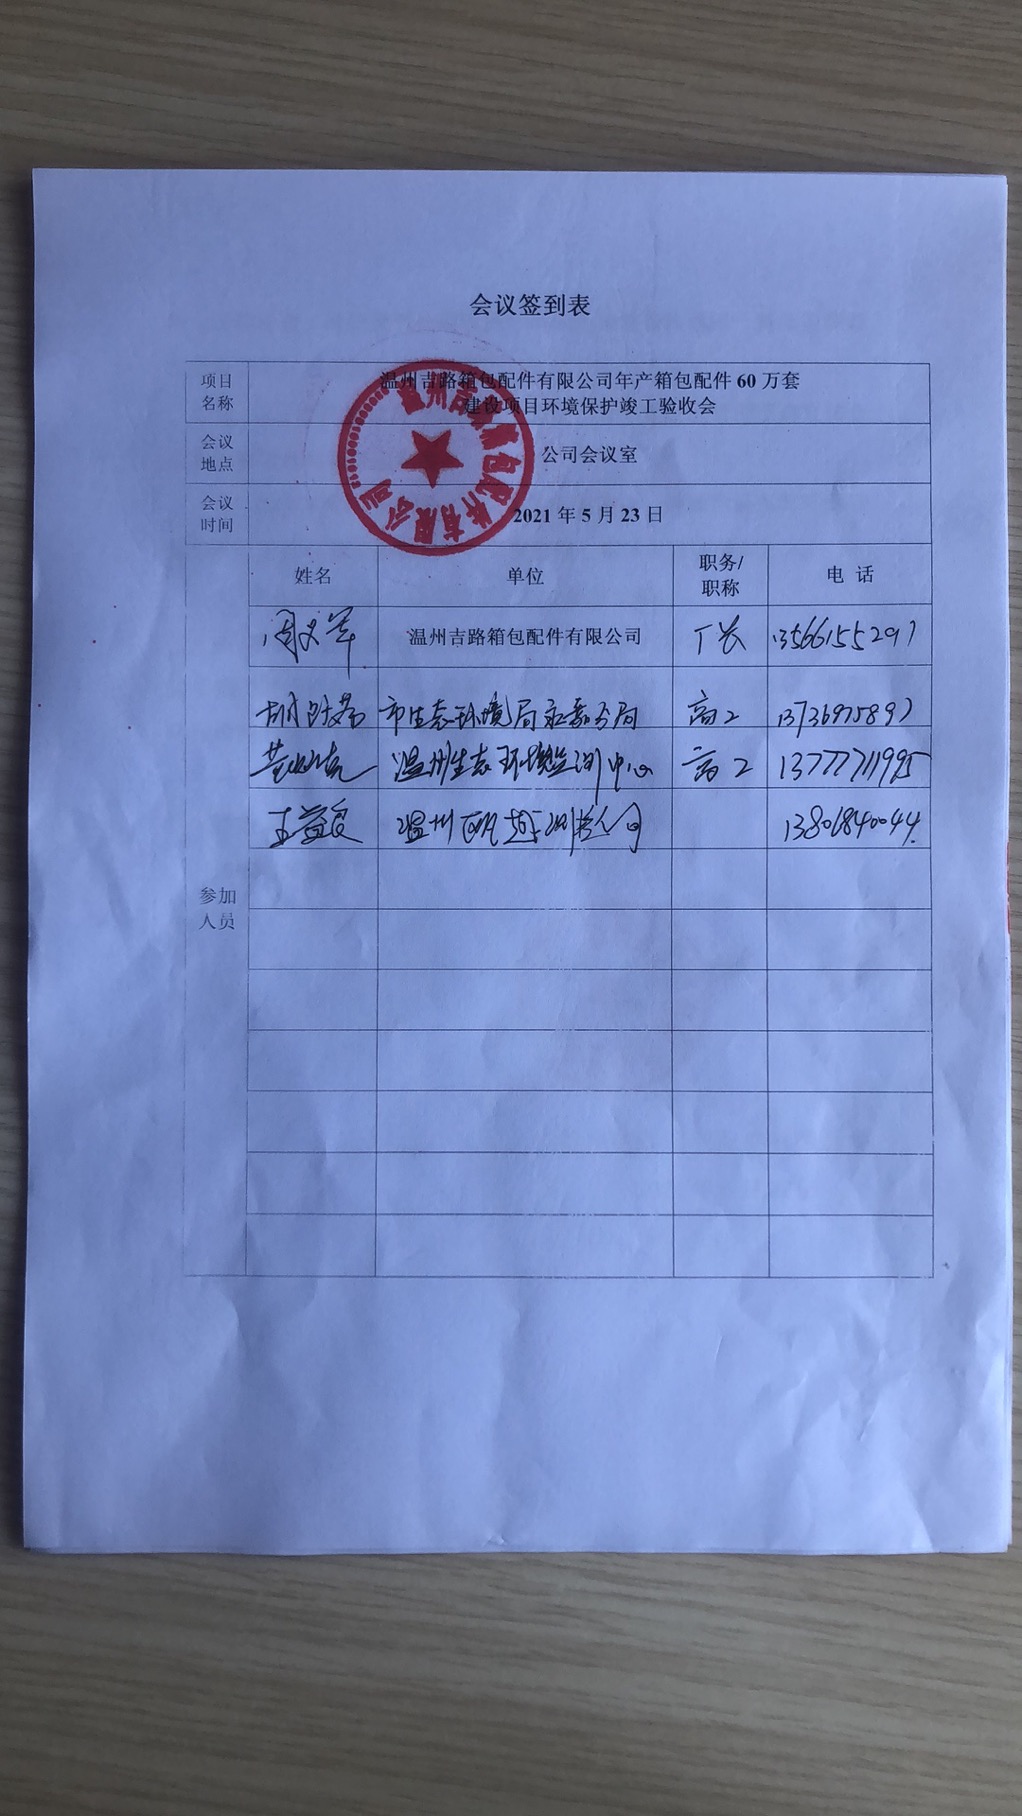 会议签到表
项目名称 温州吉路箱包配件有限公司年产箱包配件 60 万套
建设项目环境保护竣工验收会
温州吉路箱包配件有限公司
会议地点 公司会议室
会议时间 2021 年 5 月 23 日
参加人员
姓名 单位 职务/职称 电 话
周 军 温州吉路箱包配件有限公司 厂长 13566155297
胡 市生态环境局永嘉分局 高工 13736975897
温州生态环境监测中心 高工 13777711995
王益良 温州 公司 13806840044